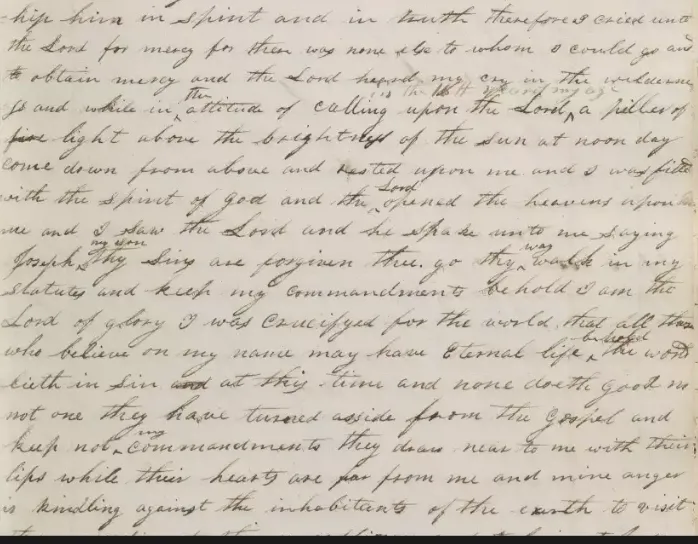 ship him in spirit and in truth therefore I cried unto
the Lord for mercy for there was none else to whom I could go and
to obtain mercy and the Lord heard my cry in the wilderne
in the 16th year of my age
ss and while in the attitude of calling upon the Lord a piller of
fire light above the brightness of the sun at noon day
come down from above and rested upon me and I was filld
with the spirit of god and the Lord opened the heavens upon
me and I saw the Lord and he spake unto me saying
Joseph my son thy sins are forgiven thee. go thy way walk in my
statutes and keep my commandments behold I am the
Lord of glory I was crucifyed for the world that all those
who believe on my name may have Eternal life behold the world
lieth in sin and at this time and none doeth good no
not one they have turned asside from the Gospel and
keep not my commandments they draw near to me with their
lips while their hearts are far from me and mine anger
is kindling against the inhabitants of the earth to visit